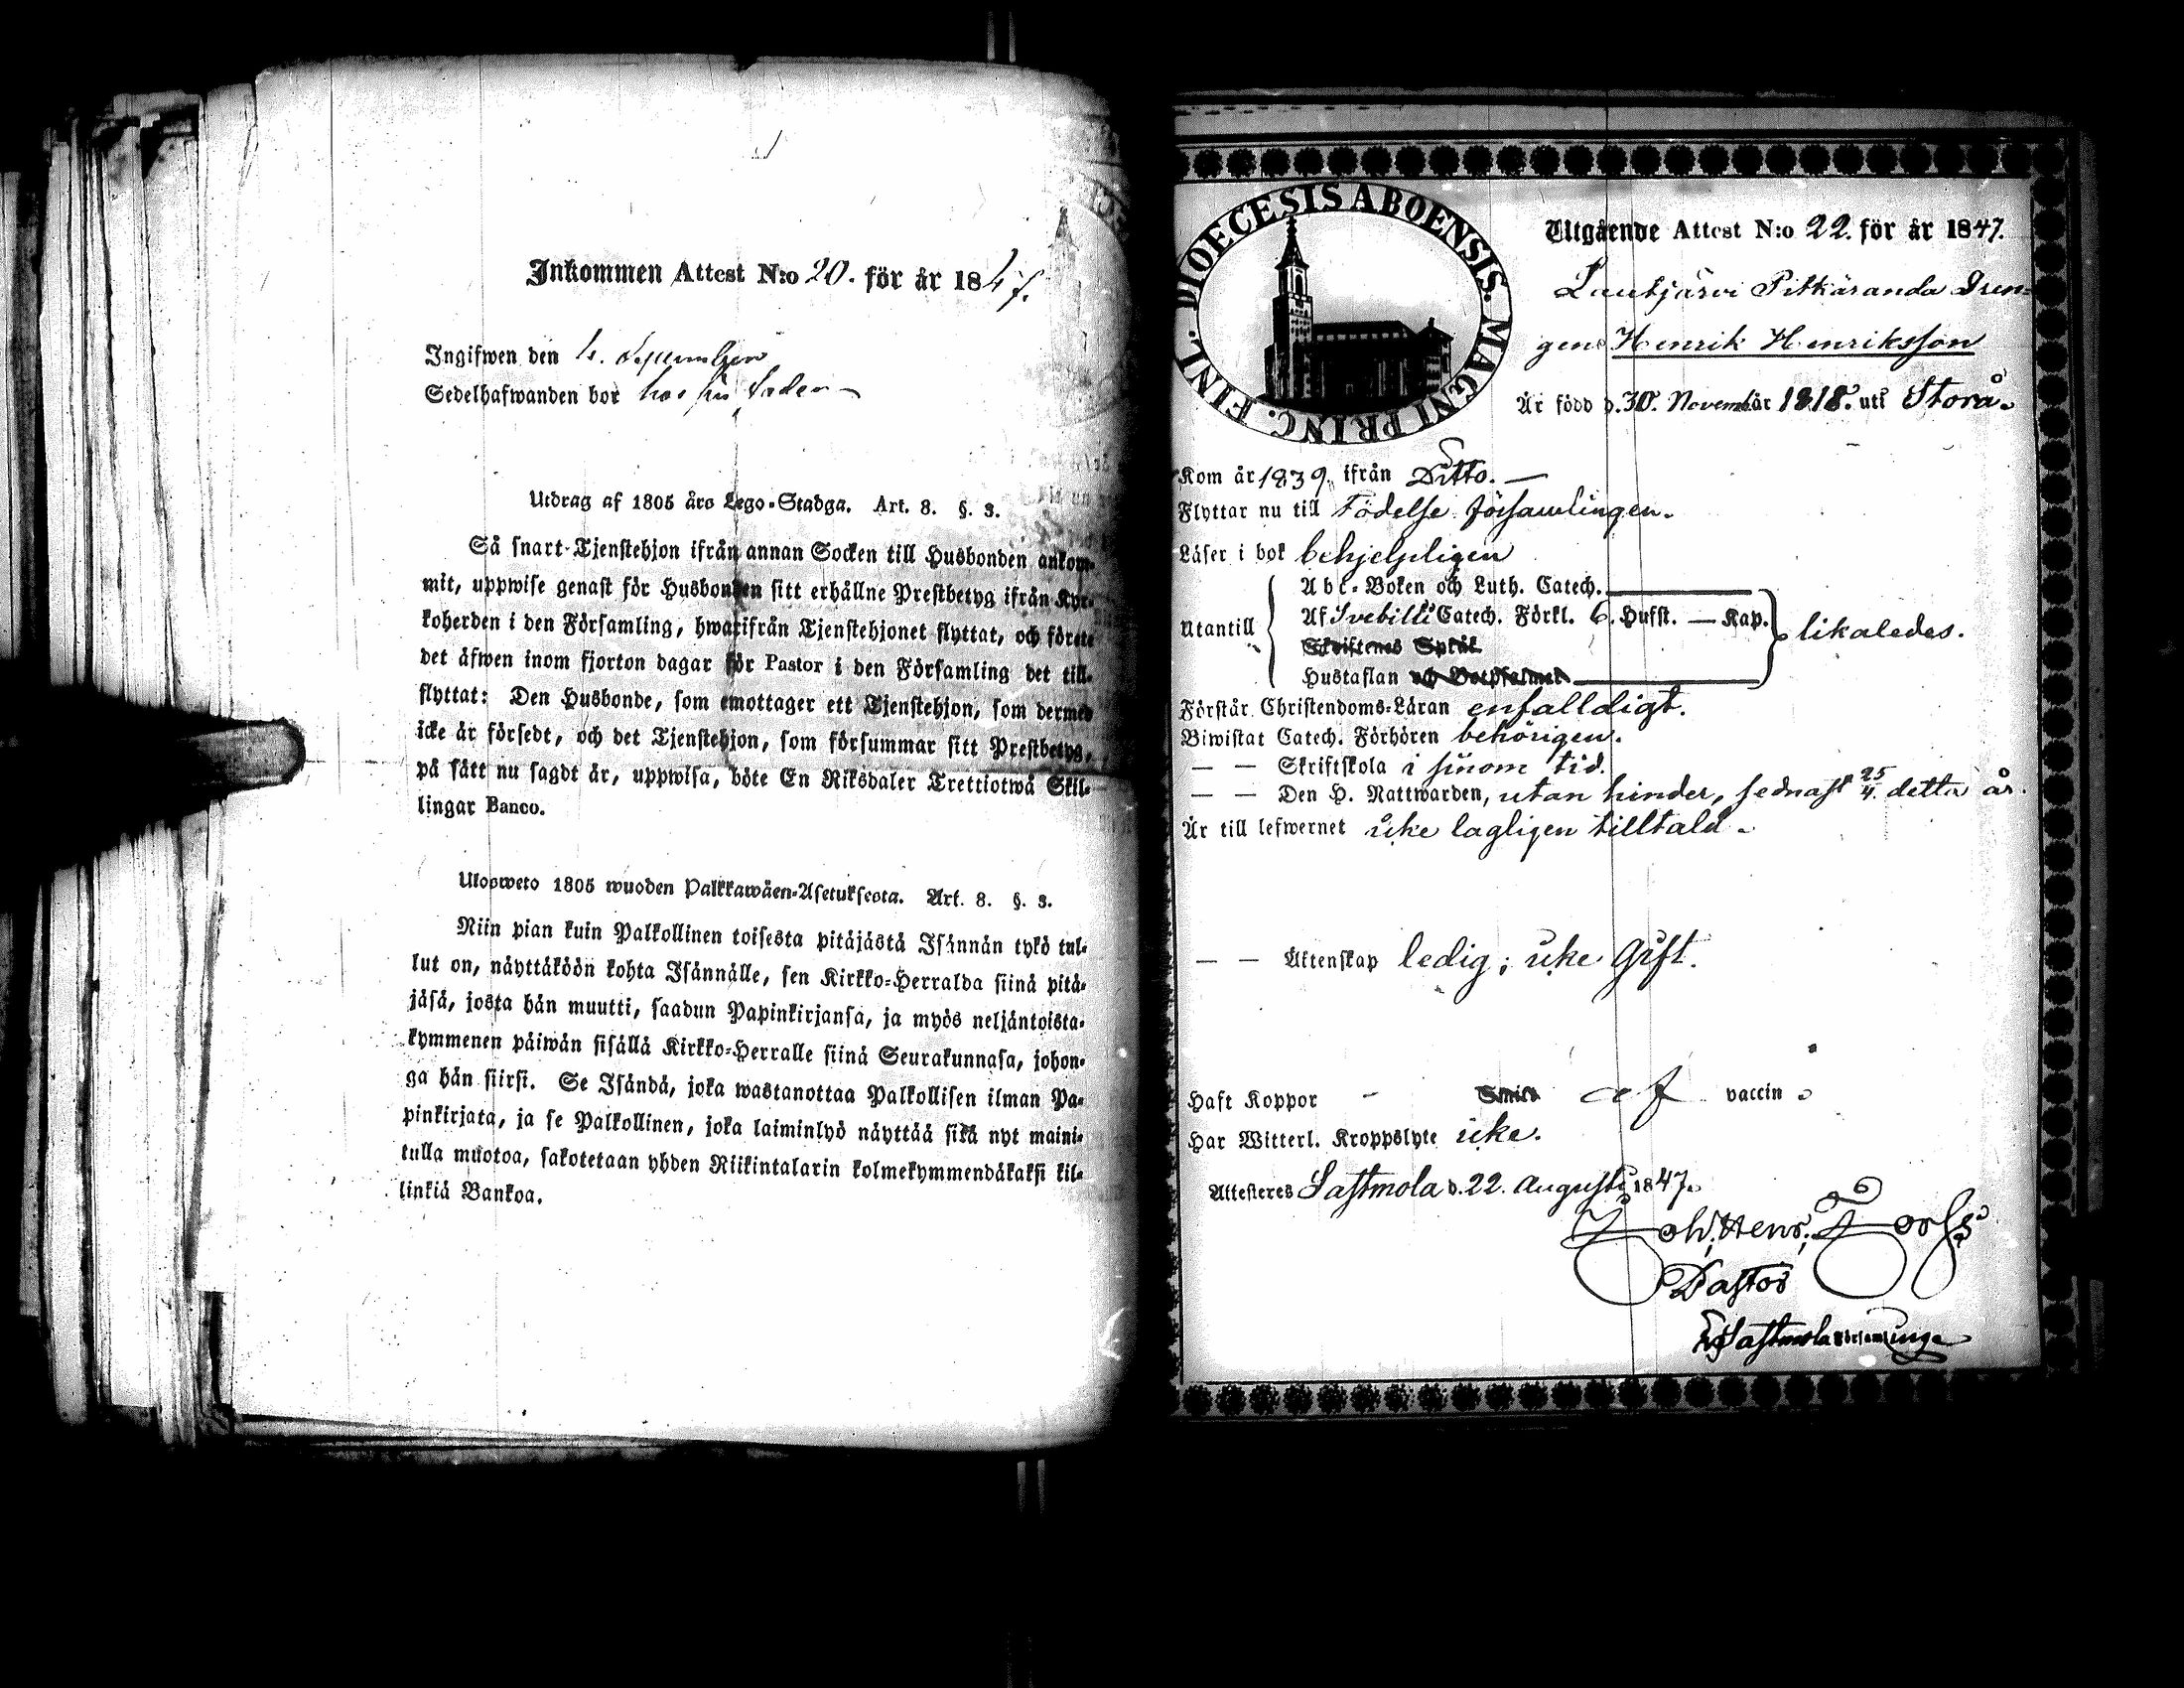 Inkommen Attest N:o 20. för år 1847.
Ingifwen den
Sedelhafwanden bor hos sin fader
Utdrag af 1805 års Lego-Stadga. Art. 8. §. 3.
Så snart Tjenstehjon ifrån annan Socken till Husbonden ankom-
mit, uppwise genast för Husbonden sitt erhållne Prestbetyg ifrån Kyr-
koherden i den Församling, hwarifrån Tjenstehjonet flyttat, och förete
det äfwen inom fjorton dagar för Pastor i den Församling det till-
flyttat: Den Husbonde, som emottager ett Tjenstehjon, som dermed
icke är försedt, och det Tjenstehjon, som försummar sitt Prestbetyg,
på sätt nu sagdt är, uppwisa, böte En Riksdaler Trettiotwå Skil-
lingar Banco.
Ulosweto 1805 wuoden Palkkawäen-Asetuksesta. Art. 8. §. 3.
Niin pian kuin Palkollinen toisesta pitäjästä Isännän tykö tul-
lut on, näyttäköön kohta Isännälle, sen Kirkko-Herralda siinä pitä-
jäsä, josta hän muutti, saadun Papinkirjansa, ja myös neljäntoista-
kymmenen päiwän sisällä Kirkko-Herralle siinä Seurakunnasa, johon-
ga hän siirsi. Se Isändä, joka wastanottaa Palkollisen ilman Pa-
pinkirjata, ja se Palkollinen, joka laiminlyö näyttää sitä nyt maini-
tulla muotoa, sakotetaan yhden Riikintalarin kolmekymmendäkaksi kil-
linkiä Bankoa.
DIOECESIS ABOENSIS. MAGNI PRINC. FINL.
Utgående Attest N:o 22. för år 1847.
Lautjärvi Pitkäranda Dren-
gen Henrik Henriksson
Är född d. 30. Novemb. år 1818. uti Storå.
Kom år 1839. ifrån Ditto. —
Flyttar nu till Födelse församlingen.
Läser i bok behjelpligen
Utantill
Abc-Boken och Luth. Catech.
Af Svebilii Catech. Förkl. 6. Hufst. — Kap.
Skriftenes Språk
Hustaflan och Botpsalmer
likaledes.
Förstår Christendoms-Läran enfalldigt.
Biwistat Catech. Förhören behörigen.
— — Skriftskola i sinom tid.
— — Den H. Nattwarden, utan hinder, sednast 25/4. detta år.
Är till lefwernet icke lagligen tilltald.
— — Äktenskap ledig; icke gift.
Haft Koppor - Smitt af vaccin.
Har Witterl. Kroppslyte icke.
Attesteres Sastmola d. 22. Augusti 1847.
Joh. Henr. Forss
Pastor
i Sastmola Församling